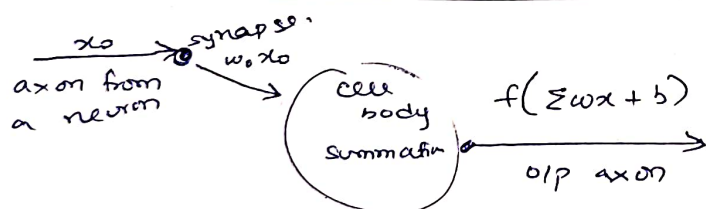 x0
synapse.
w0x0
axon from
a neuron
cell
body
summation
f(Σwx + b)
o/p axon